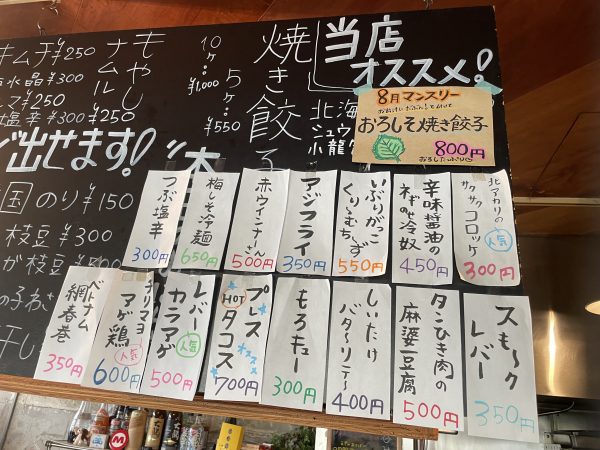 当店
オススメ!
8月マンスリー
おろしそ焼き餃子
800円
焼き餃子
10ケ…¥1,000
5ケ…¥550
もやし
ナムル
キムチ¥250
水晶¥300
¥250
塩辛¥300
¥250
出せます!
国のり¥150
枝豆¥300
が枝豆
北海
シュウ
小龍
北アカリの
サクサクコロッケ
人気
300円
辛味醤油の
ねぎのせ冷奴
450円
いぶりがっこ
くりーむちーず
550円
アジフライ
350円
赤ウインナーさん
500円
梅しそ冷麺
650円
つぶ塩辛
300円
スモ〜ク
レバー
350円
タンひき肉の
麻婆豆腐
500円
しいたけ
バタ〜ソテ〜
400円
もろキュー
300円
プレス
HOT
タコス
オススメ
700円
レバー
カラアゲ
人気
500円
チリマヨ
アゲ鶏
人気
600円
ベトナム
網春巻
350円